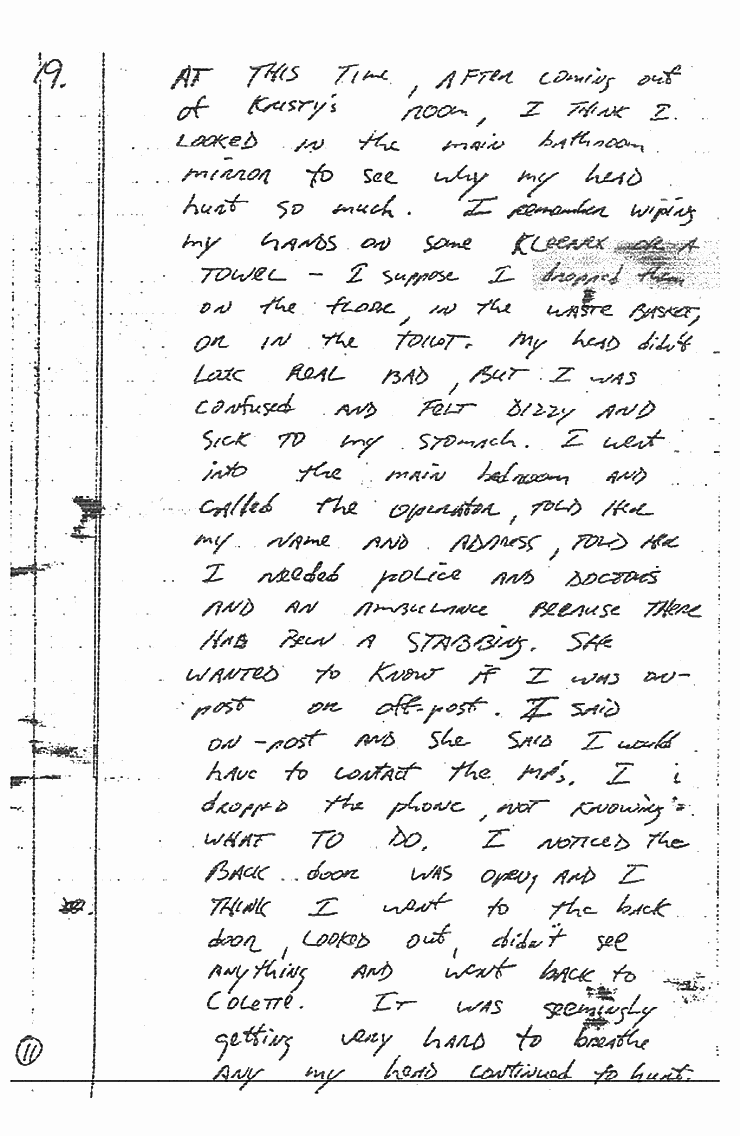 19.
AT THIS TIME, AFTER COMING OUT
OF KRISTY'S ROOM, I THINK I
LOOKED IN THE MAIN BATHROOM
MIRROR TO SEE WHY MY HEAD
HURT SO MUCH. I REMEMBER WIPING
MY HANDS ON SOME KLEENEX OR A
TOWEL - I SUPPOSE I DROPPED THEM
ON THE FLOOR, IN THE WASTE BASKET,
OR IN THE TOILOT. MY HEAD DIDN'T
LOOK REAL BAD, BUT I WAS
CONFUSED AND FELT DIZZY AND
SICK TO MY STOMACH. I WENT
INTO THE MAIN BEDROOM AND
CALLED THE OPERATOR, TOLD HER
MY NAME AND ADDRESS, TOLD HER
I NEEDED POLICE AND DOCTORS
AND AN AMBULANCE BECAUSE THERE
HAD BEEN A STABBING. SHE
WANTED TO KNOW IF I WAS ON-
POST OR OFF-POST. I SAID
ON-POST AND SHE SAID I WOULD
HAVE TO CONTACT THE MP'S. I
DROPPED THE PHONE, NOT KNOWING
WHAT TO DO. I NOTICED THE
BACK DOOR WAS OPEN, AND I
THINK I WENT TO THE BACK
DOOR, LOOKED OUT, DIDN'T SEE
ANYTHING AND WENT BACK TO
COLETTE. IT WAS SEEMINGLY
GETTING VERY HARD TO BREATHE
ANY MY HEAD CONTINUED TO HURT.
11